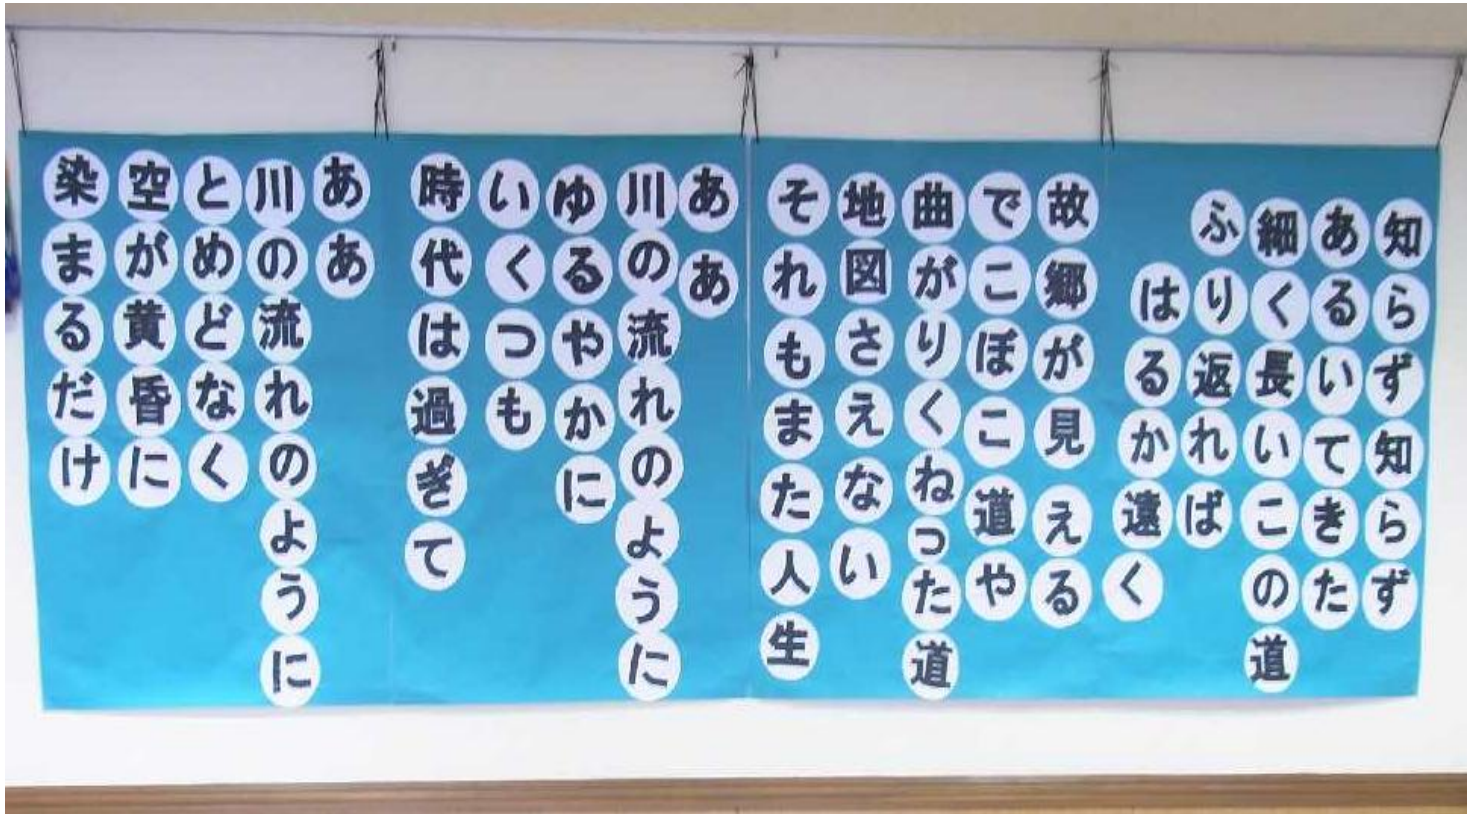 知らず知らず
あるいてきた
細く長いこの道
ふり返れば
はるか遠く
故郷が見える
でこぼこ道や
曲がりくねった道
地図さえない
それもまた人生
ああ
川の流れのように
ゆるやかに
いくつも
時代は過ぎて
ああ
川の流れのように
とめどなく
空が黄昏に
染まるだけ